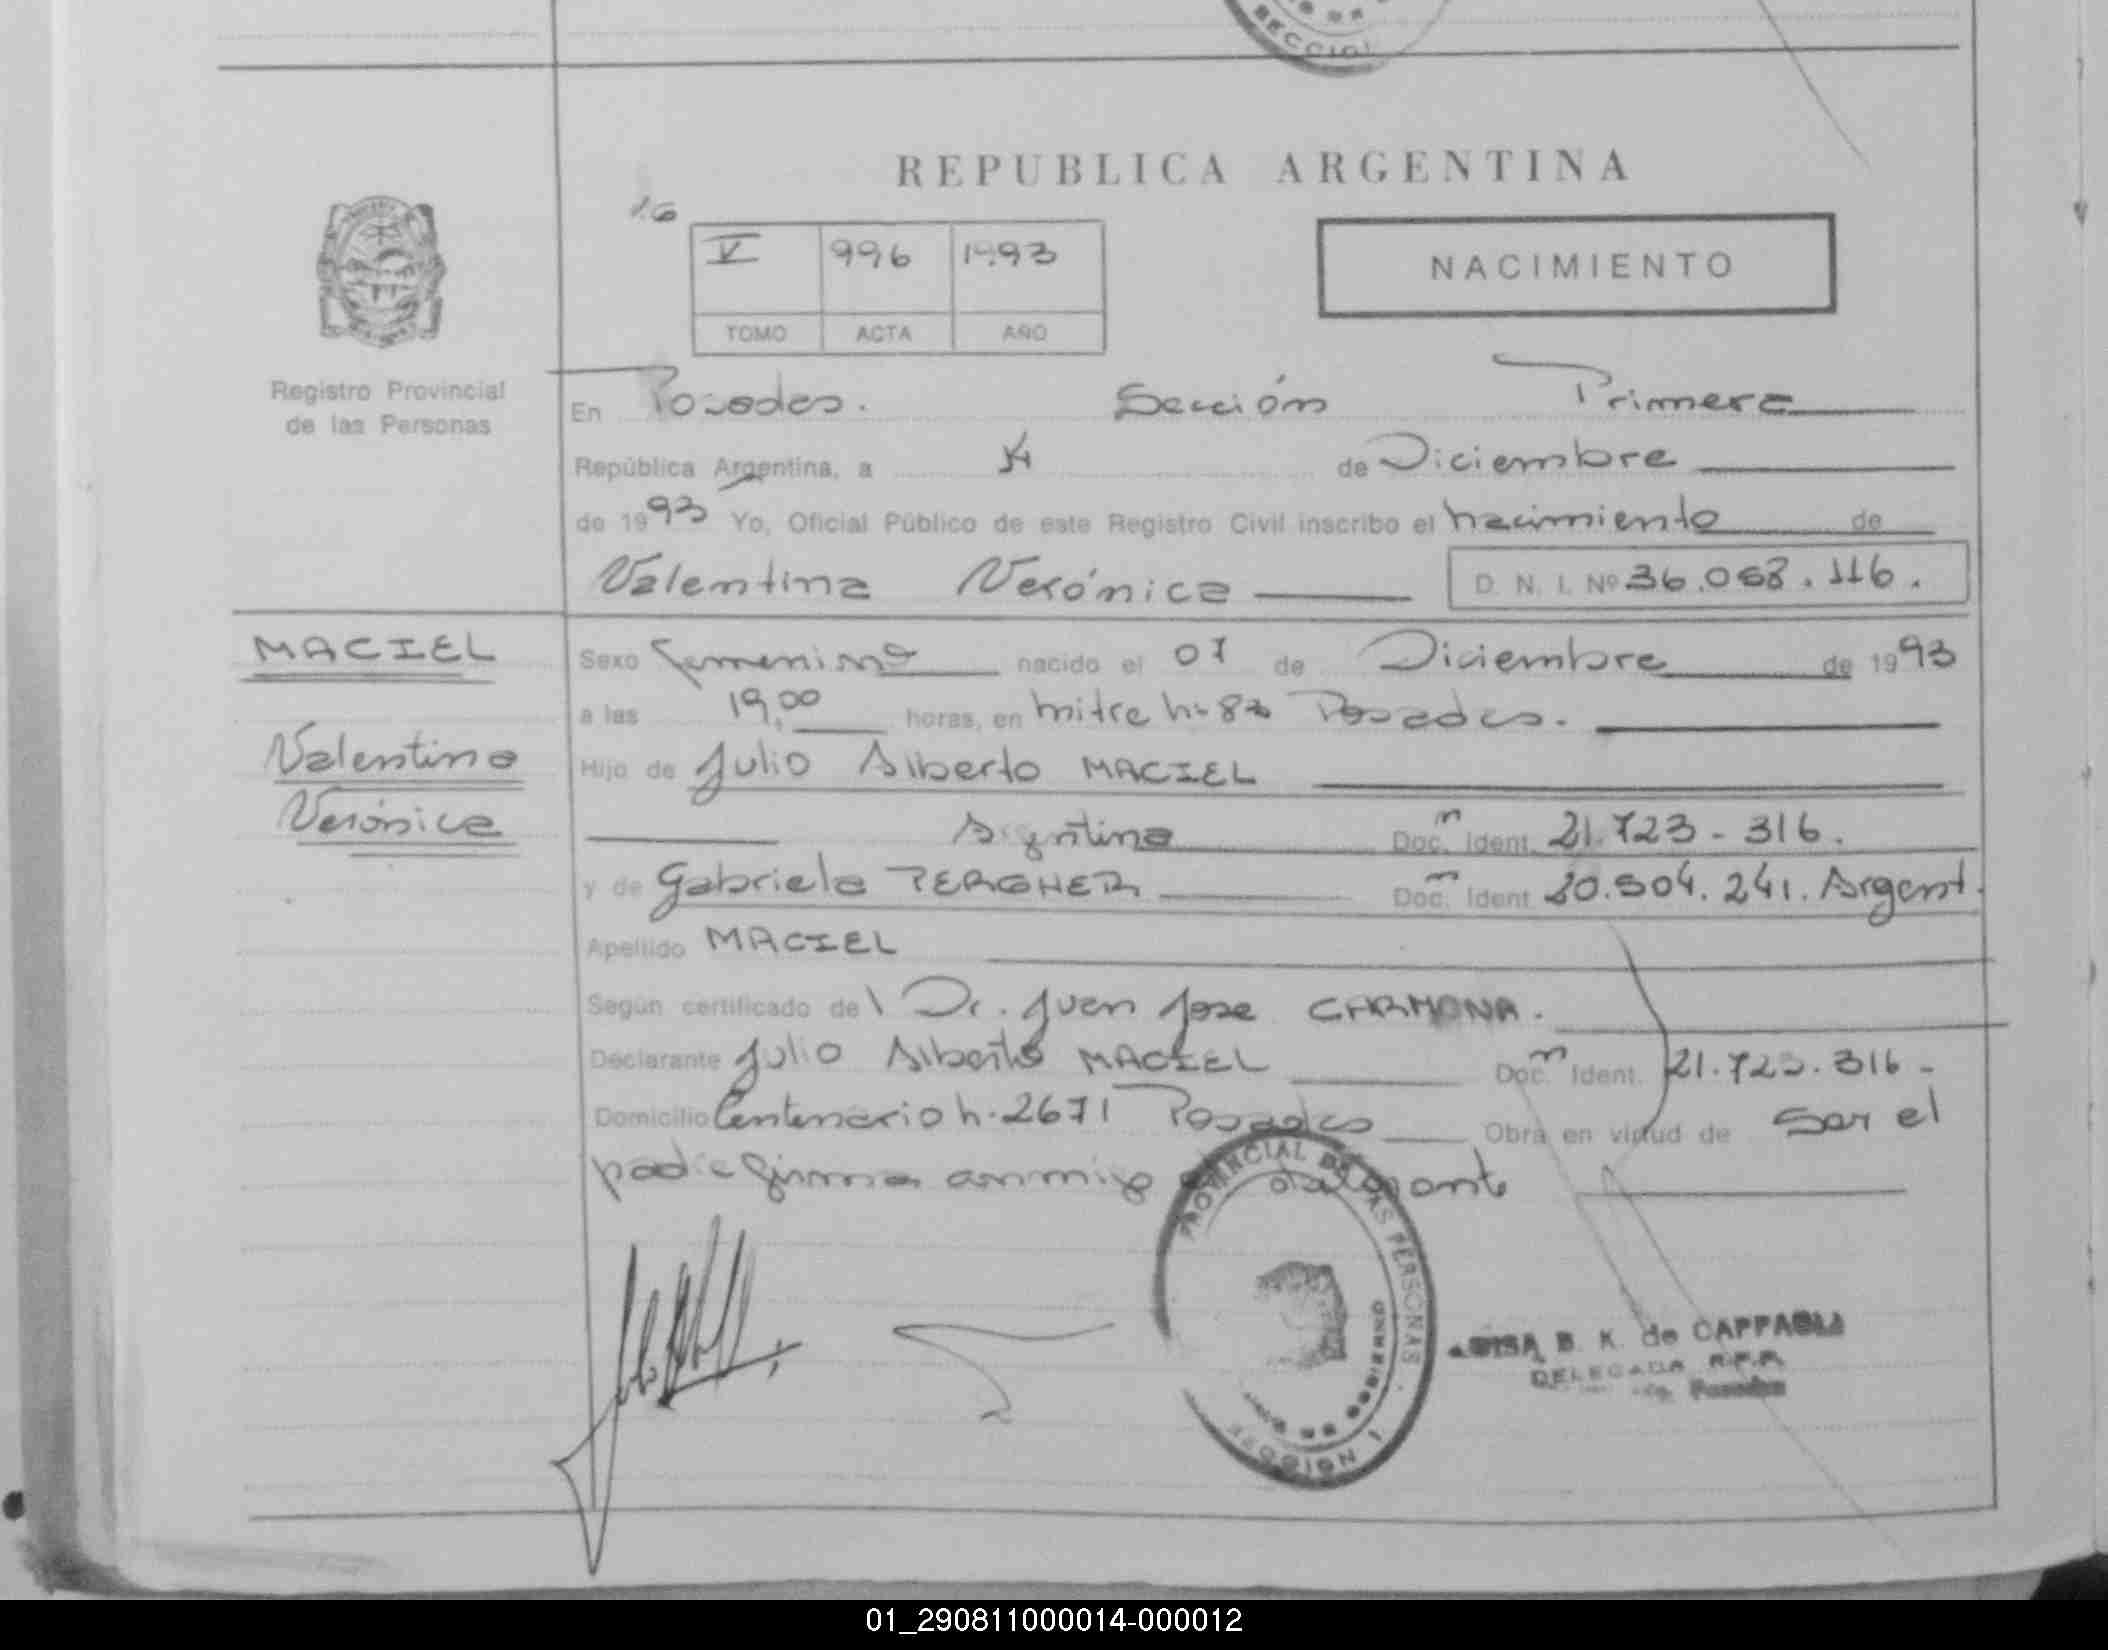 SECCION
REPUBLICA ARGENTINA
16
V 996 1993
TOMO ACTA AÑO
NACIMIENTO
Registro Provincial
de las Personas
En Posadas. Sección Primera
República Argentina, a de Diciembre
de 1993 Yo, Oficial Público de este Registro Civil inscribo el nacimiento de
Valentina Verónica D. N. I. Nº 36.058.116.
MACIEL
Valentina
Verónica
Sexo femenino nacido el 07 de Diciembre de 1993
a las 19,00 horas, en mitre n- 82 Posadas.
Hijo de Julio Alberto MACIEL
Argntina Doc. Ident. 21.723-316.
y de Gabriela PERGHER Doc. Ident. 20.504.241. Argent.
Apellido MACIEL
Según certificado del Dr. Juan Jose CARMONA.
Declarante Julio Alberto MACIEL Doc. Ident. 21.723.316-
Domicilio Centenario n. 2671 Posadas Obra en virtud de ser el
padre firma conmigo
PROVINCIAL DE LAS PERSONAS
SECCION I
B. K. de CAPPAGLI
DELEGADA R.P.P.
Posadas
01_290811000014-000012